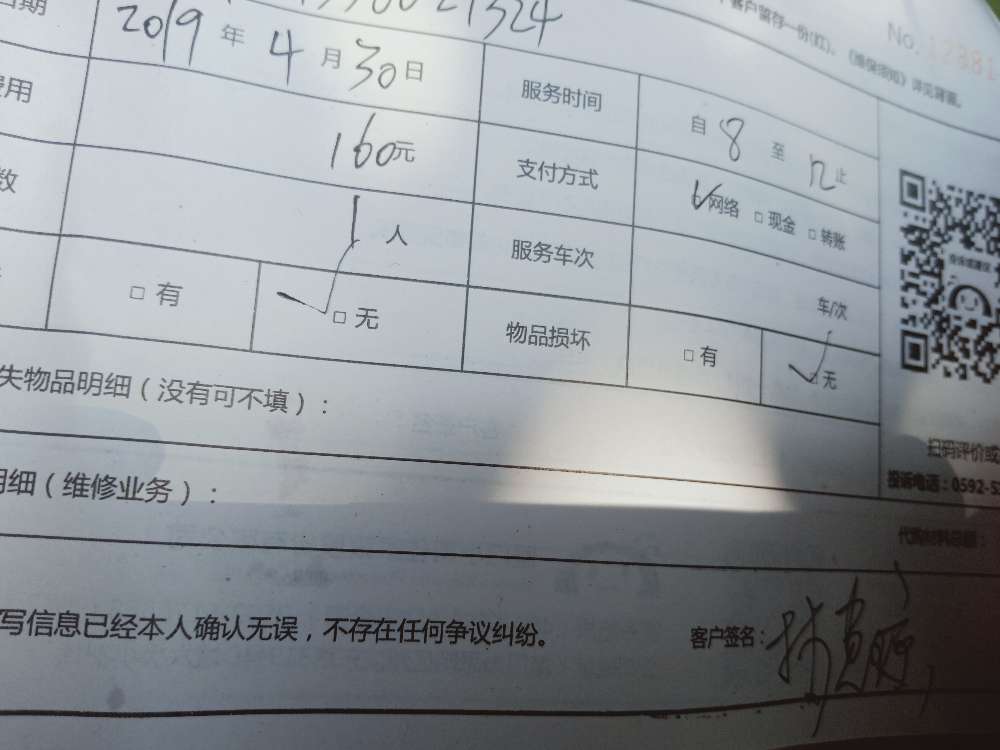 客户留存一份(红)，《维保须知》详见背面。
No.
日期 2019 年 4 月 30 日
服务时间 自 8 至 12 止
费用 160元
支付方式 ☑网络 □现金 □转账
数 1 人
服务车次 车/次
□ 有 ☑ 无
物品损坏 □ 有 ☑ 无
失物品明细（没有可不填）：
扫码评价或
明细（维修业务）：
投诉电话：0592-5
代购材料总额：
写信息已经本人确认无误，不存在任何争议纠纷。
客户签名：